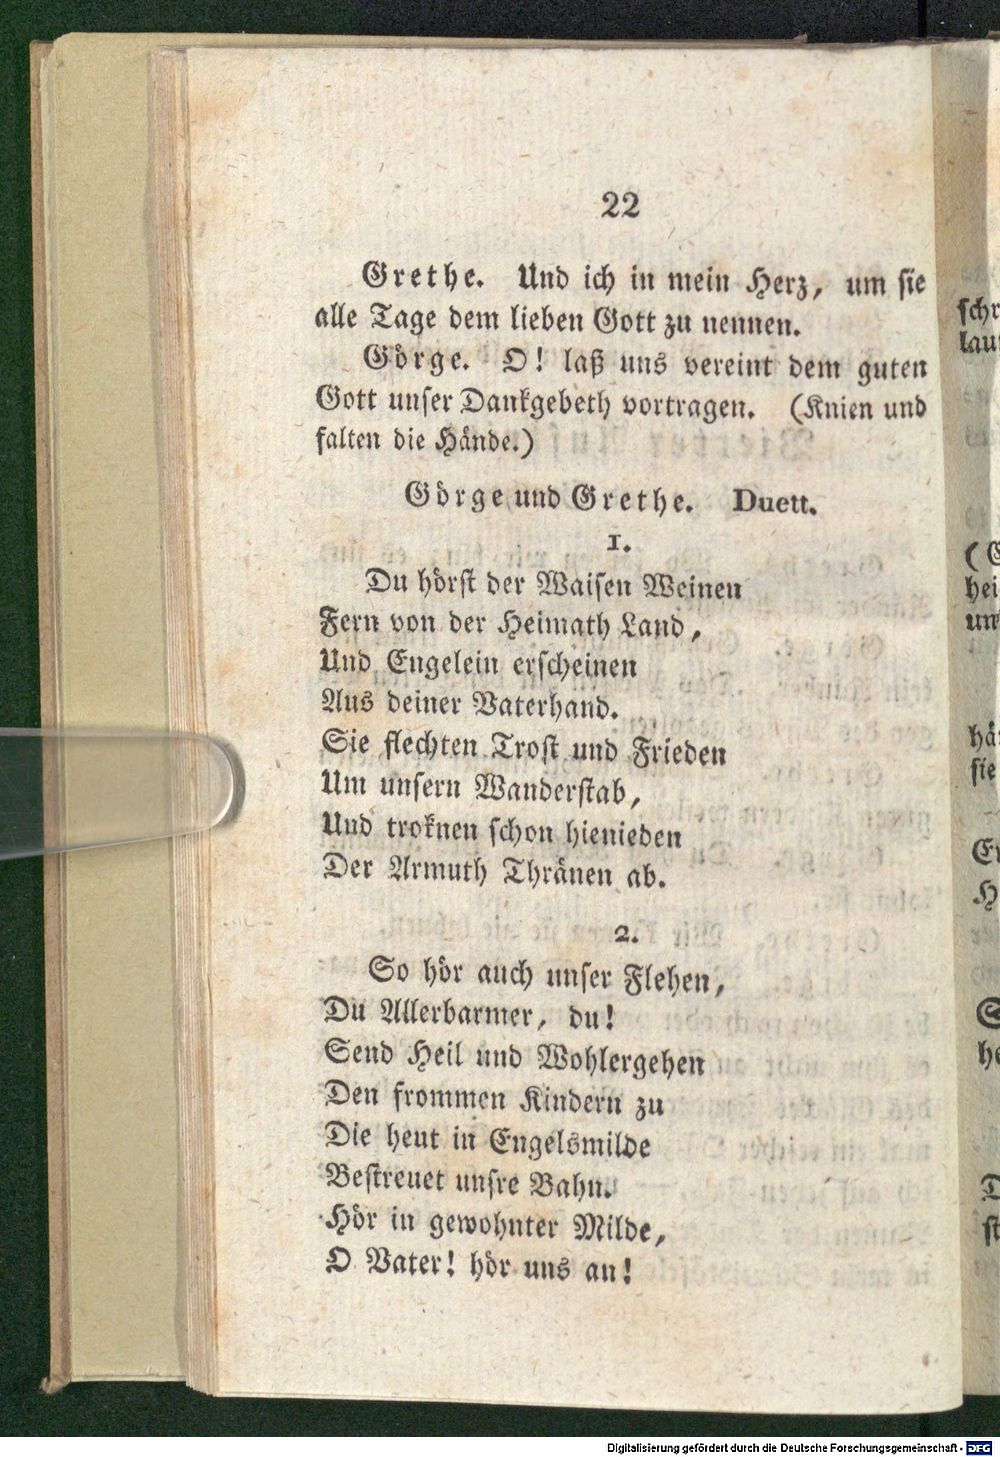 22
Grethe. Und ich in mein Herz, um sie
alle Tage dem lieben Gott zu nennen.
Görge. O! laß uns vereint dem guten
Gott unser Dankgebeth vortragen. (Knien und
falten die Hände.)
Görge und Grethe. Duett.
1.
Du hörst der Waisen Weinen
Fern von der Heimath Land,
Und Engelein erscheinen
Aus deiner Vaterhand.
Sie flechten Trost und Frieden
Um unsern Wanderstab,
Und troknen schon hienieden
Der Armuth Thränen ab.
2.
So hör auch unser Flehen,
Du Allerbarmer, du!
Send Heil und Wohlergehen
Den frommen Kindern zu
Die heut in Engelsmilde
Bestreuet unsre Bahn.
Hör in gewohnter Milde,
O Vater! hör uns an!
Digitalisierung gefördert durch die Deutsche Forschungsgemeinschaft - DFG